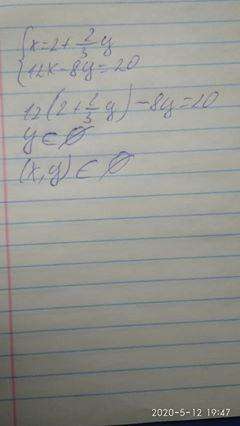 {x=2+2/3y
{12x-8y=20
12(2+2/3y)-8y=20
y∈∅
(x,y)∈∅
2020-5-12 19:47